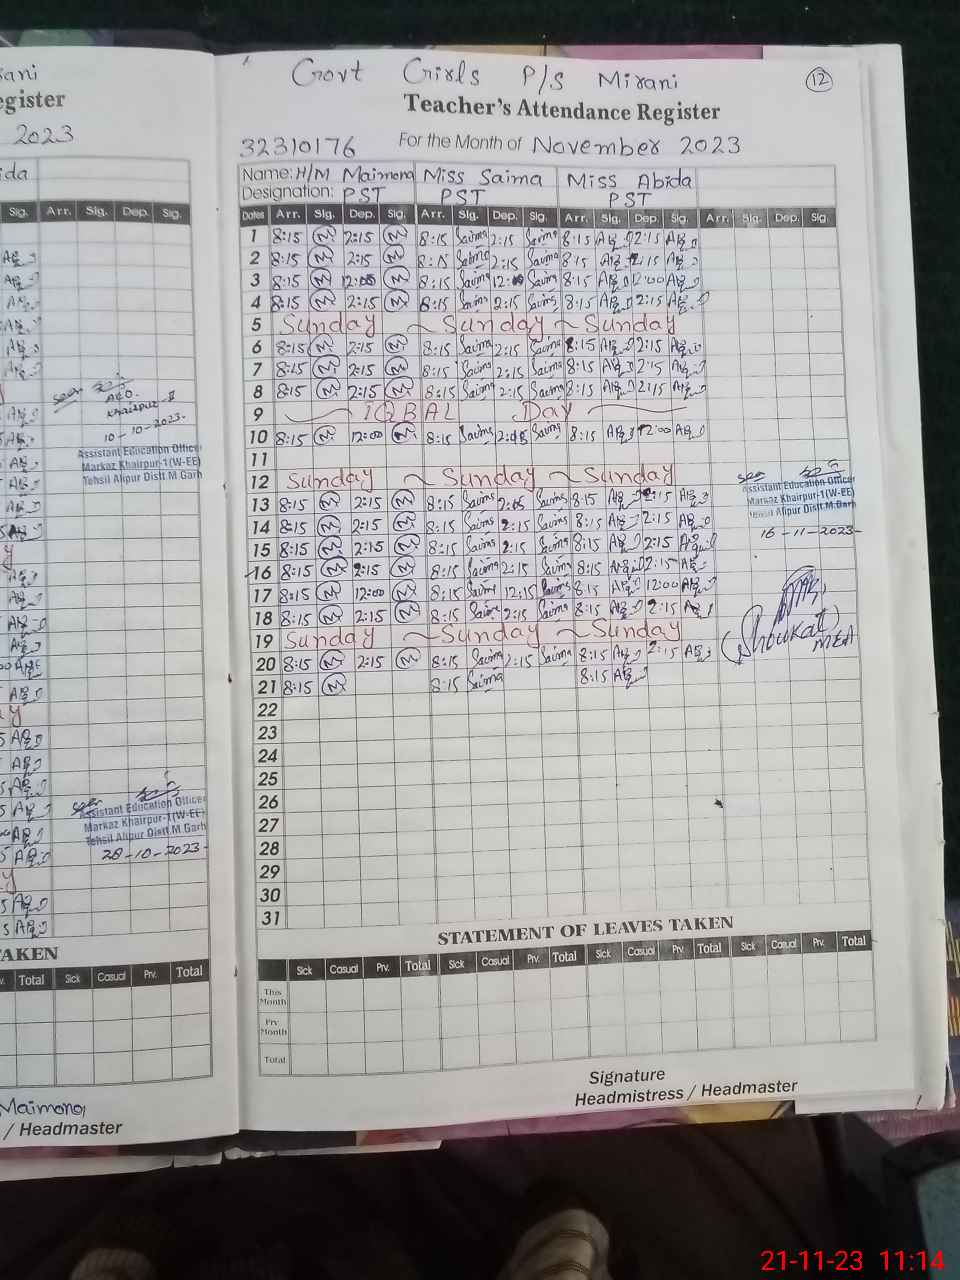 Govt Girls P/S Mirani
12
Teacher's Attendance Register
32310176 For the Month of November 2023
Name: H/M Maimona Miss Saima Miss Abida
Designation: PST PST PST
Dates Arr. Sig. Dep. Sig. Arr. Sig. Dep. Sig. Arr. Sig. Dep. Sig. Arr. Sig. Dep. Sig.
1 8:15 M 2:15 M 8:15 Saima 2:15 Saima 8:15 2:15
2 8:15 M 2:15 M 8:15 Saima 2:15 Saima 8:15 2:15
3 8:15 M 12:00 M 8:15 Saima 12:00 Saima 8:15 12:00
4 8:15 M 2:15 M 8:15 Saima 2:15 Saima 8:15 2:15
5 Sunday ~ Sunday ~ Sunday
6 8:15 M 2:15 M 8:15 Saima 2:15 Saima 8:15 2:15
7 8:15 M 2:15 M 8:15 Saima 2:15 Saima 8:15 2:15
8 8:15 M 2:15 M 8:15 Saima 2:15 Saima 8:15 2:15
9 IQBAL Day
10 8:15 M 12:00 M 8:15 Saima Saima 8:15 12:00
11
12 Sunday ~ Sunday ~ Sunday
13 8:15 M 2:15 M 8:15 Saima Saima 8:15 2:15
14 8:15 M 2:15 M 8:15 Saima 2:15 Saima 8:15 2:15
15 8:15 M 2:15 M 8:15 Saima 2:15 Saima 8:15 2:15
16 8:15 M 2:15 M 8:15 Saima 2:15 Saima 8:15 2:15
17 8:15 M 12:00 M 8:15 Saima 12:15 Saima 8:15 12:00
18 8:15 M 2:15 M 8:15 Saima 2:15 Saima 8:15 2:15
19 Sunday ~ Sunday ~ Sunday
20 8:15 M 2:15 M 8:15 Saima 2:15 Saima 8:15 2:15
21 8:15 M 8:15 Saima 8:15
22
23
24
25
26
27
28
29
30
31
seen
Assistant Education Officer
Markaz Khairpur-1(W-EE)
Tehsil Alipur Distt.M.Garh
16-11-2023
(Showkat)
MEA
STATEMENT OF LEAVES TAKEN
Sick Casual Prv. Total Sick Casual Prv. Total Sick Casual Prv. Total Sick Casual Prv. Total
This Month
Prv Month
Total
Signature
Headmistress / Headmaster
rani
egister
2023
ida
Sig. Arr. Sig. Dep. Sig.
seen
AEO
Khairpur-I
10-10-2023
Assistant Education Officer
Markaz Khairpur-1(W-EE)
Tehsil Alipur Distt M Garh
seen
Assistant Education Officer
Markaz Khairpur-1(W-EE)
Tehsil Alipur Distt M Garh
28-10-2023
TAKEN
Total Sick Casual Prv. Total
Maimona
/ Headmaster
21-11-23 11:14